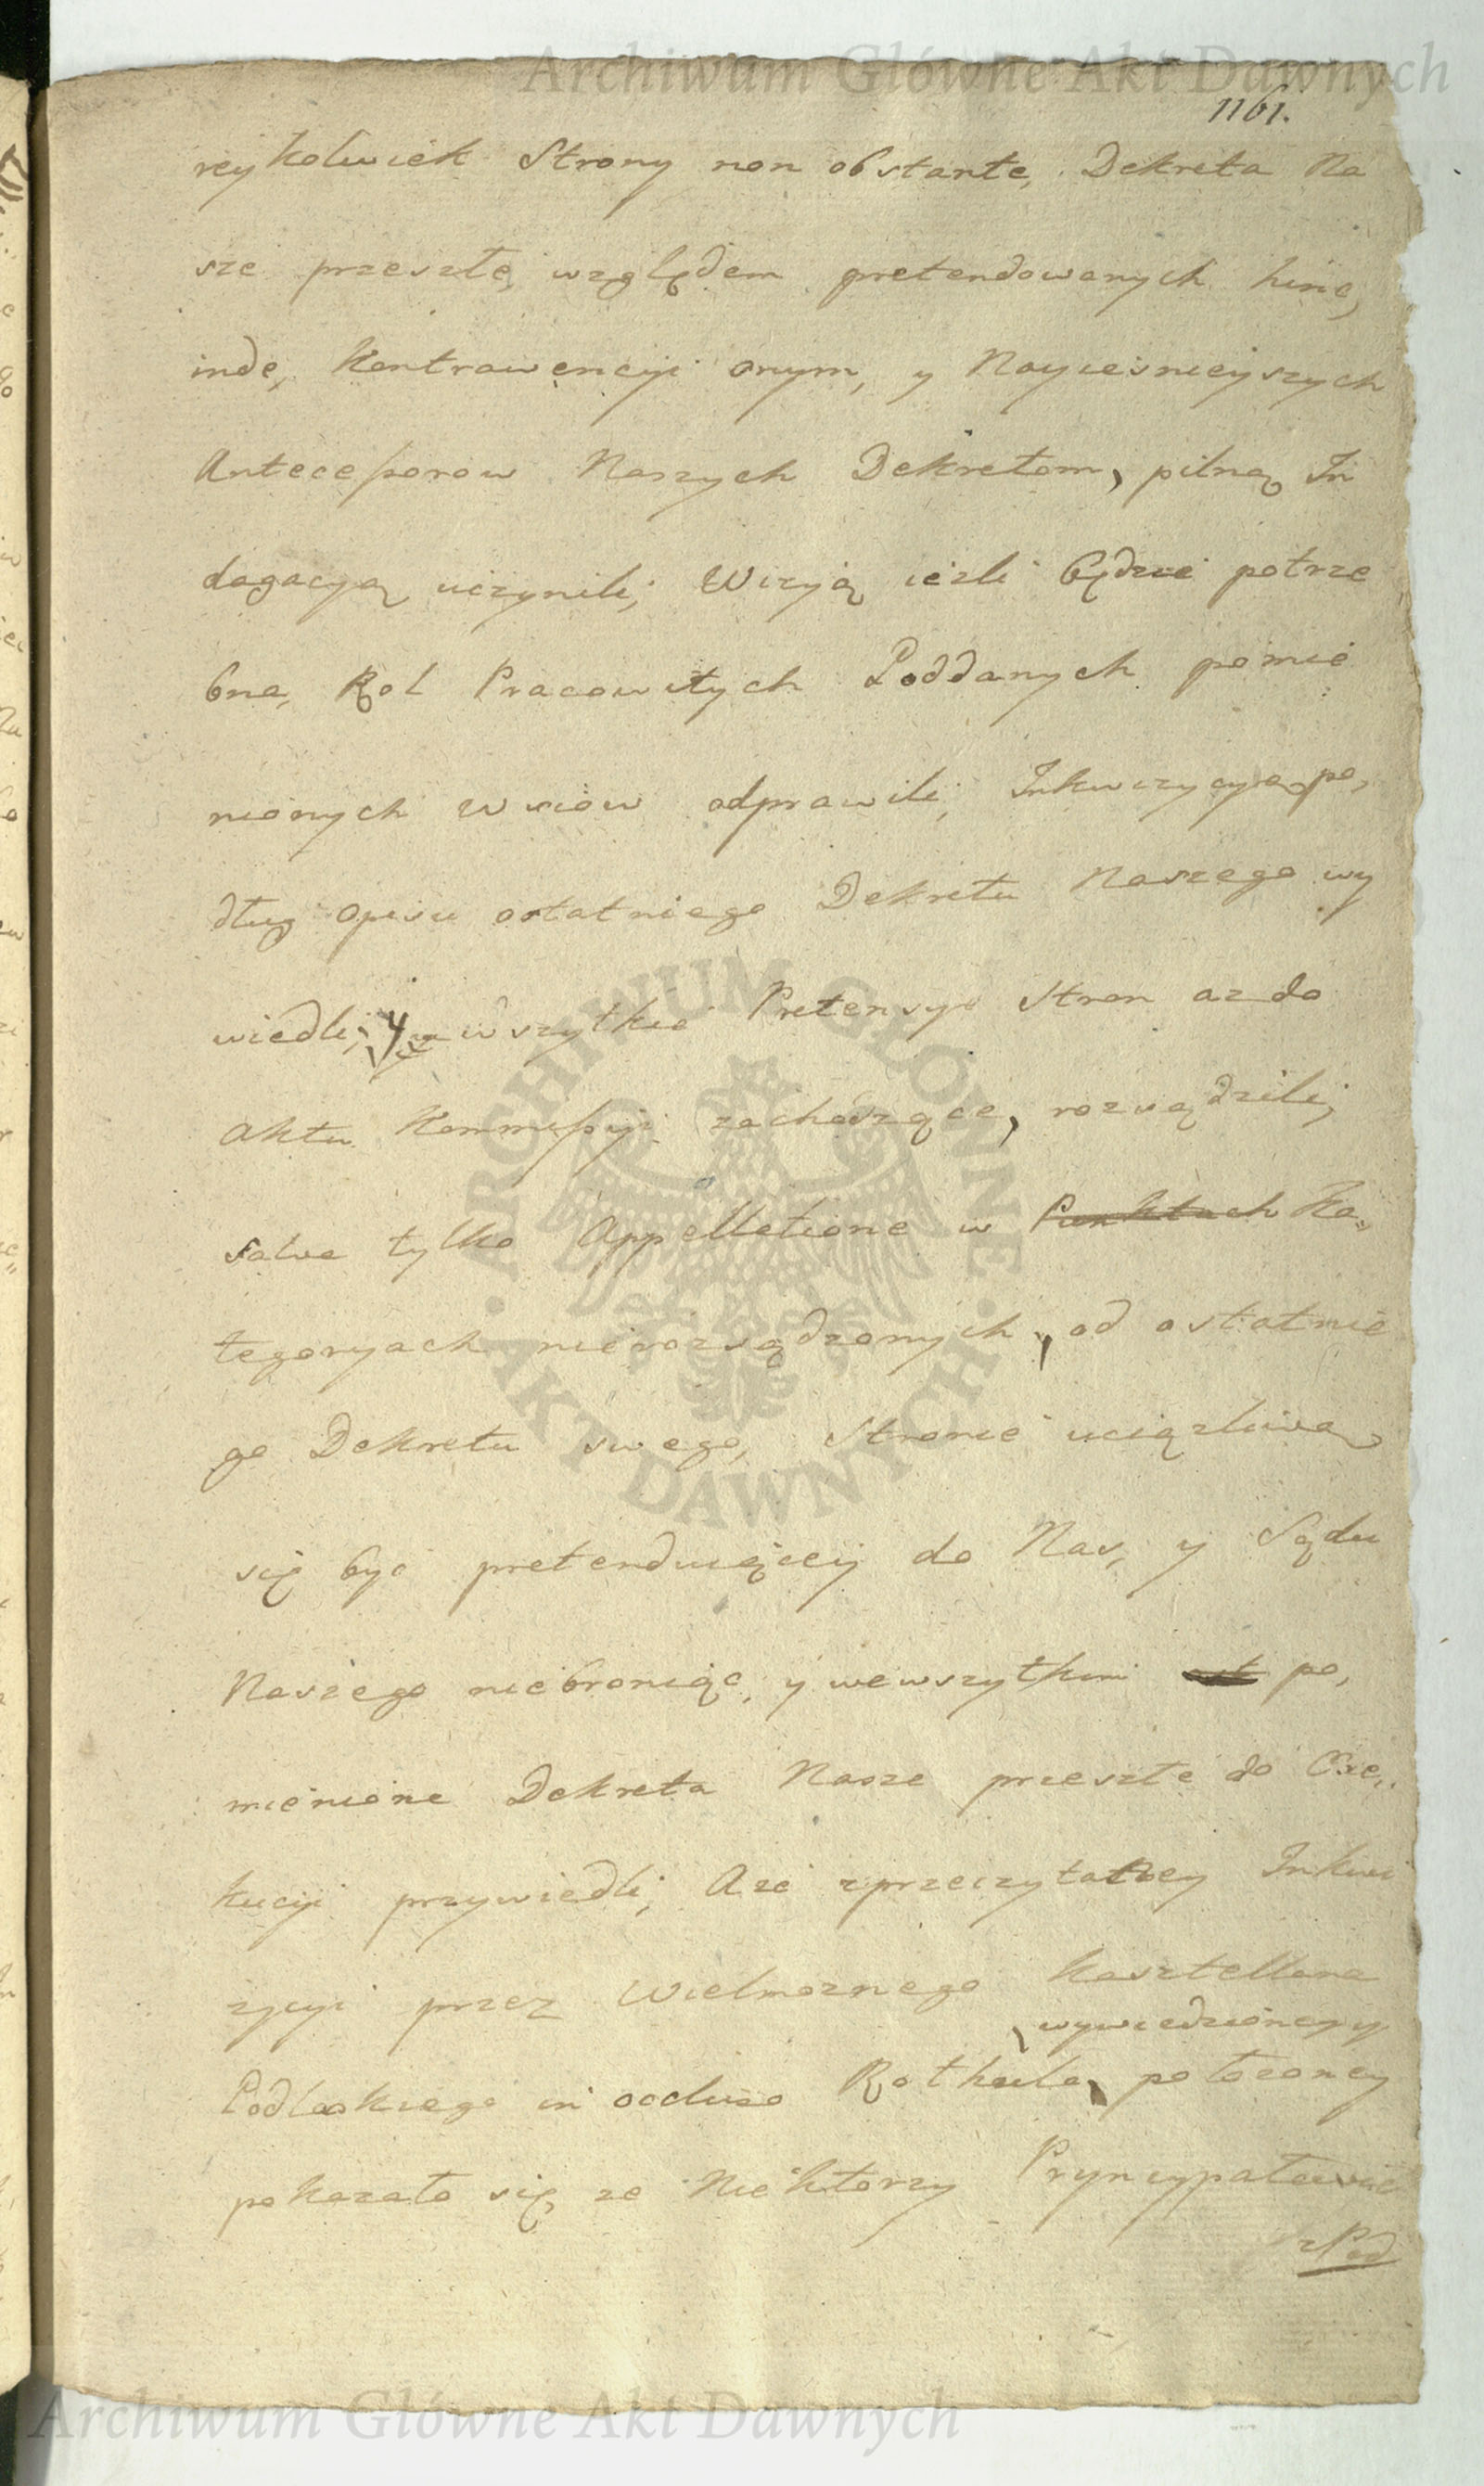 Archiwum Główne Akt Dawnych
1161.
reykolwiek Strony non obstante, Dekreta Na
sze przeszłe, względem pretendowanych hinc,
inde, Kontrawencyi onym, y Nayiesnieyszych
Antecessorow Naszych Dekretom, pilną In
dagacyą uczynili; Wizyą ieżli będzie potrze
bna, Rol Pracowitych Poddanych pomie
nionych Wsiow odprawili; Inkwizycyą po,
dług opisu ostatniego Dekretu Naszego wy
wiedli; y wszytkie Pretensye Stron az do
Aktu Kommissyi zachodzące, rozsądzili;
salva tylko Appellatione w Punktach Ka,,
tegoryach nierozsądzonych, od ostatnie
go Dekretu swego, Stronie uciązliwą
się być pretenduiącey do Nas, y Sądu
Naszego niebroniąc, y wewszytkim po,
mienione Dekreta Nasze przeszłe do Exe,,
kucyi przywiedli; A ze zprzeczytaney Inkwi
zycyi przez Wielmoznego Kasztellana
wywiedzioney y
Podlaskiego in occluso Rothulo połozoney
pokazało się, ze Niektorzy Pryncypałowie
z Pod
ARCHIWUM GŁÓWNE · AKT DAWNYCH ·
Archiwum Główne Akt Dawnych